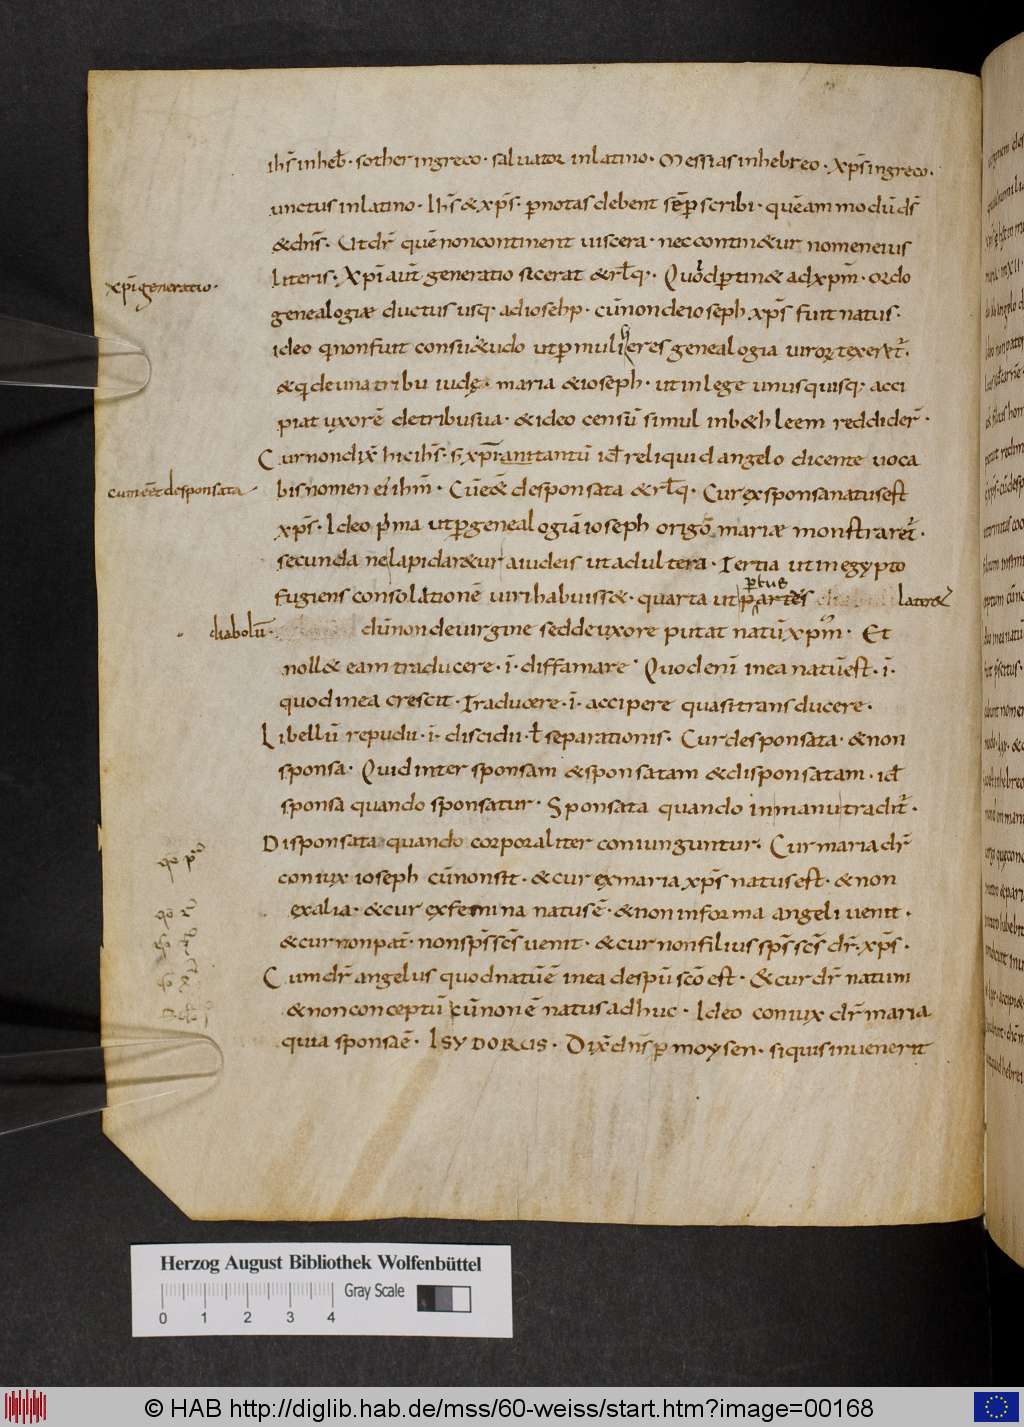 ihs̄ inheb̄· sother ingreco· saluator inlatino· Messias inhebreo· xp̄s ingreco·
unctus inlatino· Ihs̄ &xp̄s· ꝑnotas debent sēꝑ scribi· quēammodū ds̄
&dn̄s· Ut dr̄ quē noncontinent uiscera· nec contin&ur nomen eius
xp̄i generatio·
literis· Xp̄i aut̄ generatio sic erat &rl̄q· Quod ꝑtin& adxp̄m· ordo
genealogiæ ductus usq· adioseph· cū nondeioseph xp̄s fuit natus·
ideo q nonfuit consu&udo ut ꝑ mulieres genealogia uiroꝝ texer&̄·
&q deuna tribu iudę· maria &ioseph· ut inlege unusquisq· acci
piat uxorē detribusua· &ideo censū simul inb&hleem reddider̄·
Cur nondix̄ hic ihs̄· s· xp̄m tantū id̄ reliquid angelo dicente uoca
cum eēt desponsata
bis nomen ei ihm̄· Cū eēt desponsata &rl̄q· Cur exsponsa natus est
xp̄s· Ideo pma ut ꝑgenealogiā ioseph origō mariæ monstrar&̄·
secunda nelapidar&ur aiudeis ut adultera· Tertia ut inegypto
fugiens consolationē uiri habuiss&· quarta ut ꝑtus later&
diabolū· dū nondeuirgine sed deuxore putat natū xp̄m· Et
noll& eam traducere· ī· diffamare· Quod enī inea natū est· ī·
quod inea crescit· Traducere· ī· accipere quasi transducere·
Libellū repudii· ī· discidii· ł separationis· Cur desponsata· &non
sponsa· Quid inter sponsam &sponsatam &disponsatam· id̄
sponsa quando sponsatur· Sponsata quando inmanu tradit̄·
Disponsata quando corporaliter coniunguntur· Cur maria dr̄
coniux ioseph cū nonsit· &cur ęxmaria xp̄s natus est· &non
ęxalia· &cur ęxfemina natus ē· &non informa angeli uenit·
&cur nonpat̄· nonsp̄s sc̄s uenit· &cur nonfilius sp̄s sc̄s dr̄· xp̄s·
Cum dr̄ angelus quod natū ē inea despū scō est· &cur dr̄ natum
&non conceptū cū non ē natus adhuc· Ideo coniux dr̄ maria
quia sponsa ē· ISYDORUS· Dix̄ dn̄s ꝑ moysen· siquis inuenerit
Herzog August Bibliothek Wolfenbüttel
Gray Scale
0 1 2 3 4
© HAB http://diglib.hab.de/mss/60-weiss/start.htm?image=00168